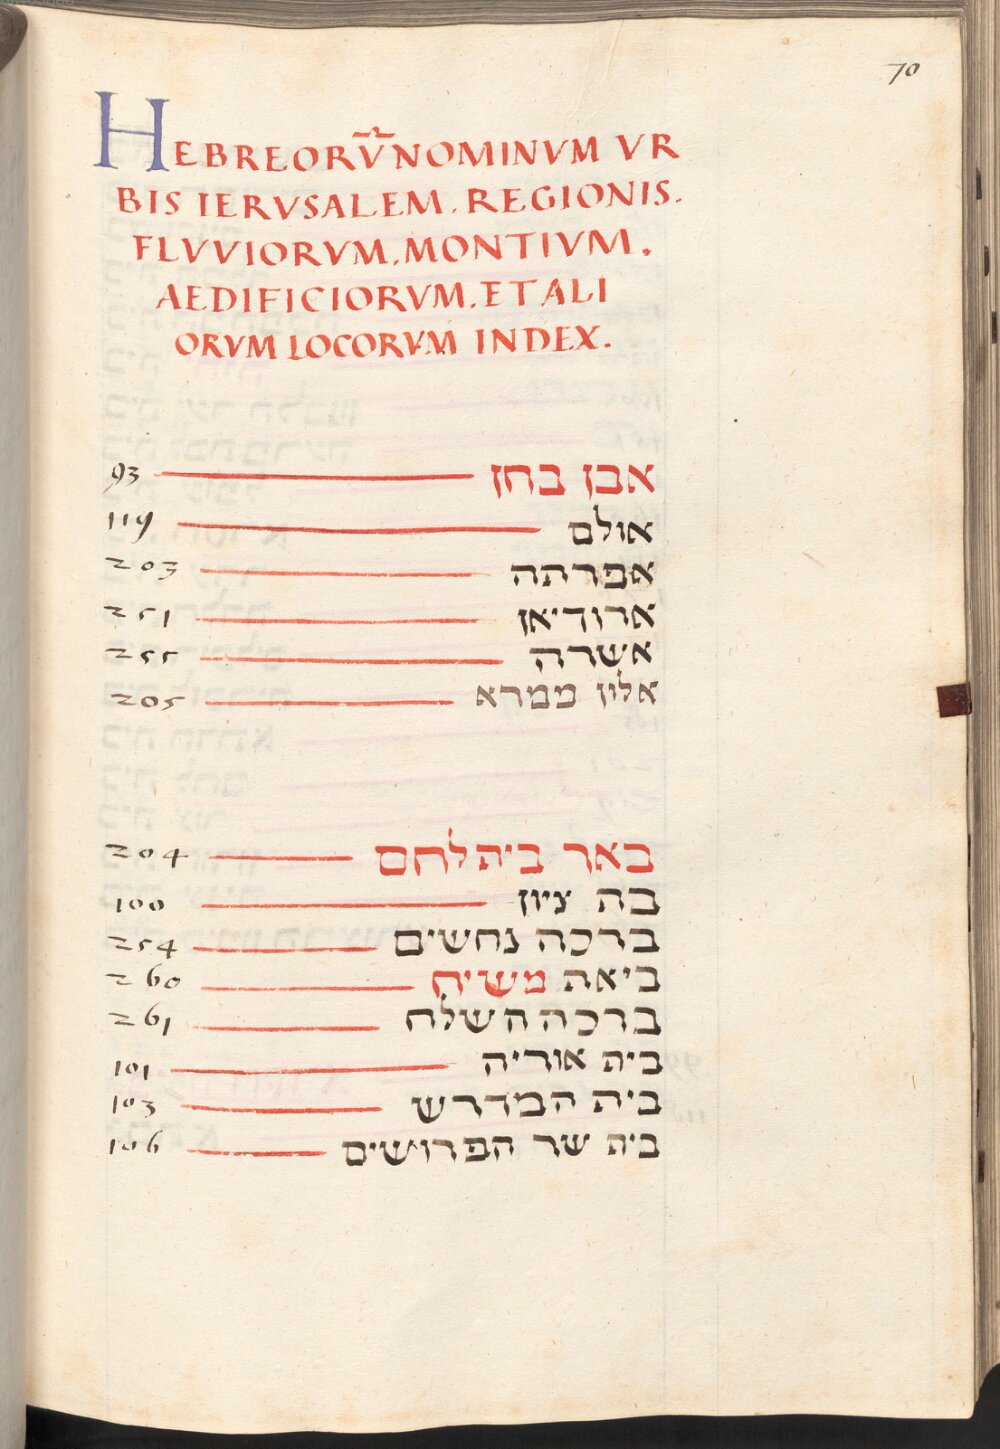 70
HEBREORV̄ NOMINVM VR
BIS IERVSALEM. REGIONIS.
FLVVIORVM. MONTIVM.
AEDIFICIORVM. ET ALI
ORVM LOCORVM INDEX.
אבן בחן 93
אולם 119
אפרתה 203
ארודיאן 251
אשרה 255
אלין ממרא 205
באר ביתלחם 204
בה ציון 100
ברכה נחשים 254
ביאת משיח 260
ברכה השלח 261
בית אוריה 101
בית המדרש 103
בית שר הפרושים 106